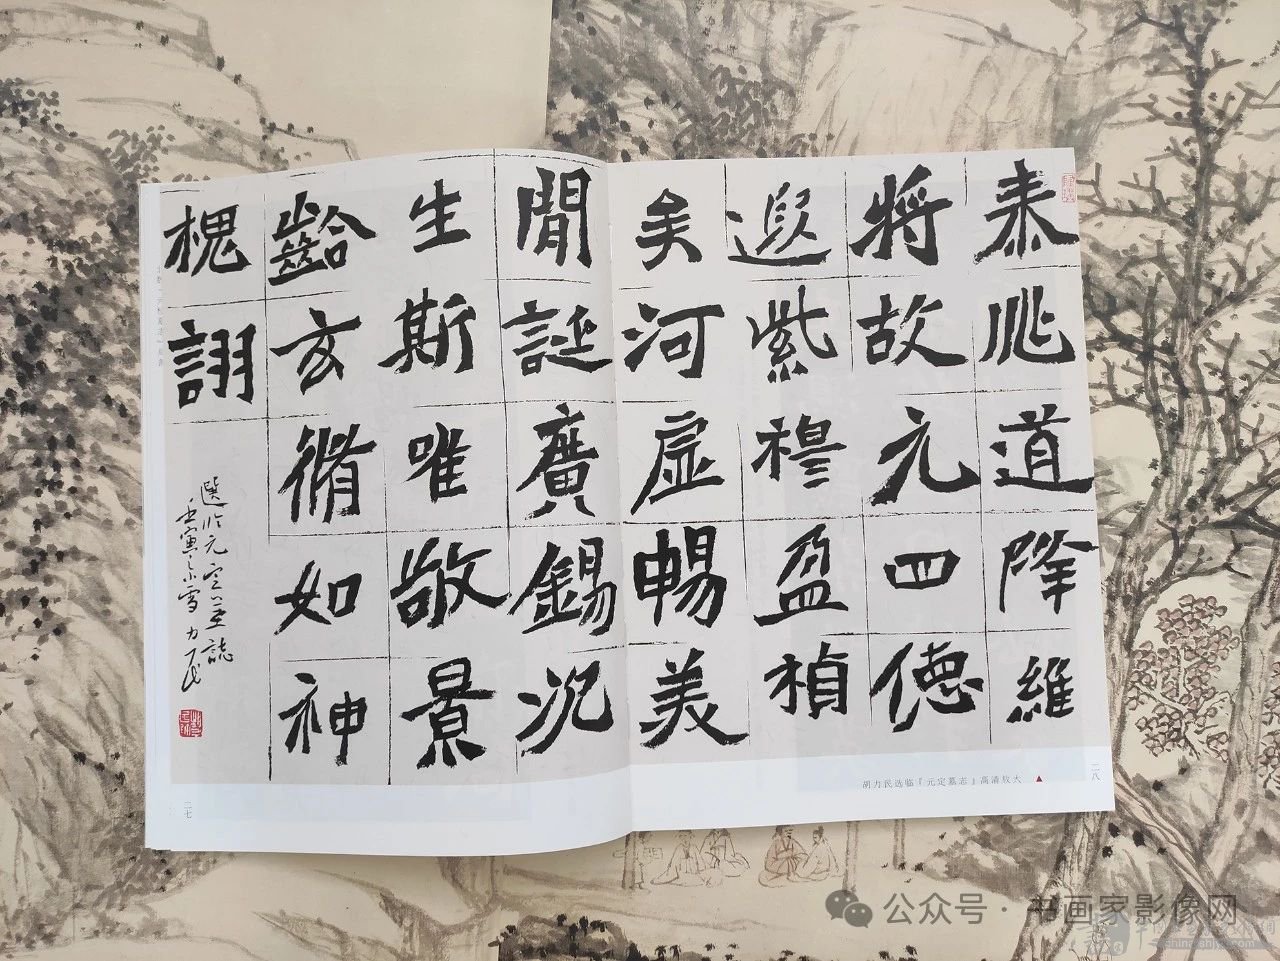 泰兆道降維
將故元四德
遐紫穆盈禎
矣河虛暢美
閒誕廣錫况
生斯唯敬景
齡亥脩如神
槐詡
選临元定墓誌
壬寅之小雪力民
胡力民选临『元定墓志』高清放大
二八
二七
公众号·书画家影像网